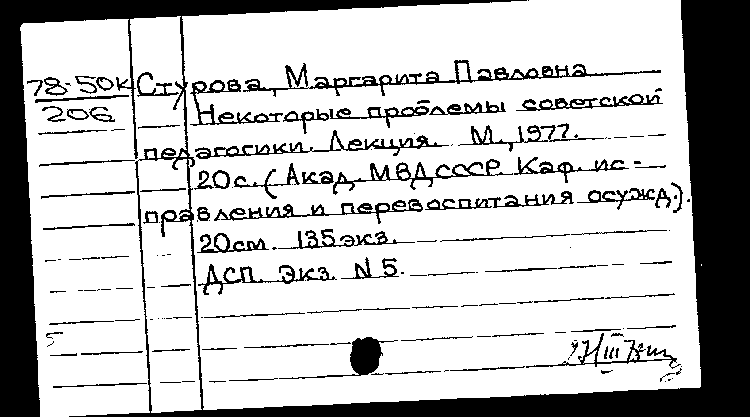 78-50к Стурова, Маргарита Павловна
206
Некоторые проблемы советской
педагогики. Лекция. М., 1977.
20с. (Акад. МВД СССР. Каф. ис-
правления и перевоспитания осужд.).
20см. 135экз.
ДСП. Экз. N 5.
5
27/III 78